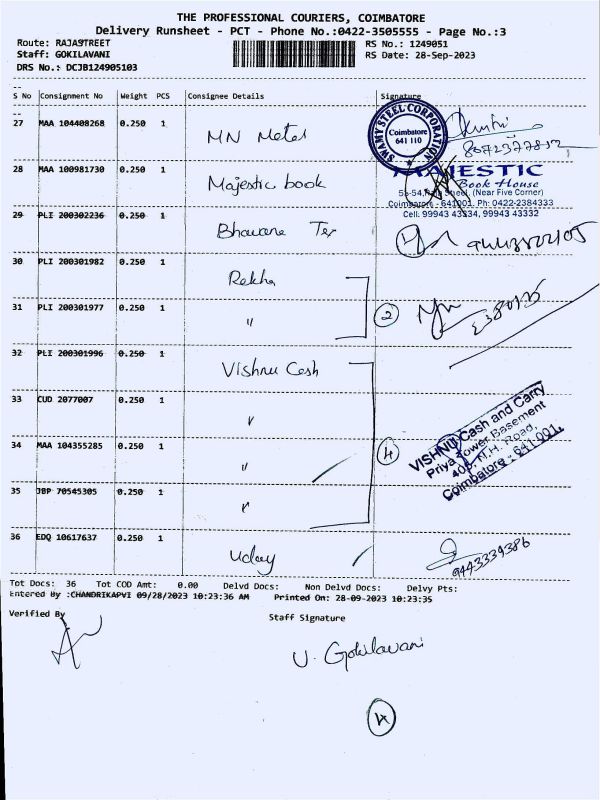 THE PROFESSIONAL COURIERS, COIMBATORE
Delivery Runsheet - PCT - Phone No.:0422-3505555 - Page No.:3
Route: RAJASTREET RS No.: 1249051
Staff: GOKILAVANI RS Date: 28-Sep-2023
DRS No.: DCJB124905103
S No Consignment No Weight PCS Consignee Details Signature
27 MAA 104408268 0.250 1 MN Metal
SWAMY STEEL CORPORATION
Coimbatore
641 110
28 MAA 100981730 0.250 1 Majestic book
MAJESTIC
Book House
(Near Five Corner)
Coimbatore - 641001. Ph: 0422-2384333
Cell: 99943 43334, 99943 43332
29 PLI 200302236 0.250 1 Bhavana Tex
30 PLI 200301982 0.250 1 Rekha
31 PLI 200301977 0.250 1 " 2
32 PLI 200301996 0.250 1 Vishnu Cash
33 CUD 2077007 0.250 1 "
34 MAA 104355285 0.250 1 " 4
VISHNU Cash and Carry
Priya Tower Basement
N.H. Road,
Coimbatore - 641 001.
35 JBP 70545305 0.250 1 "
36 EDQ 10617637 0.250 1 Uday
9443339386
Tot Docs: 36 Tot COD Amt: 0.00 Delvd Docs: Non Delvd Docs: Delvy Pts:
Entered By :CHANDRIKAPVI 09/28/2023 10:23:36 AM Printed On: 28-09-2023 10:23:35
Verified By Staff Signature
U. Gokilavani